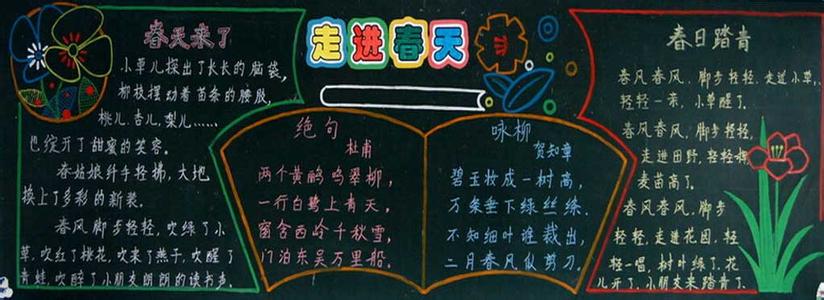 走进春天
春天来了
小草儿探出了长长的脑袋,
柳枝摆动着苗条的腰肢,
桃儿、杏儿、梨儿……
也绽开了甜蜜的笑容。
春姑娘纤手轻拂,大地
换上了多彩的新装。
春风脚步轻轻,吹绿了小
草,吹红了桃花,吹来了燕子,吹醒了
青蛙,吹醉了小朋友朗朗的读书声。
绝句
杜甫
两个黄鹂鸣翠柳,
一行白鹭上青天。
窗含西岭千秋雪,
门泊东吴万里船。
咏柳
贺知章
碧玉妆成一树高,
万条垂下绿丝绦。
不知细叶谁裁出,
二月春风似剪刀。
春日踏青
春风春风,脚步轻轻,走进小草,
轻轻一亲,小草醒了。
春风春风,脚步轻轻,
走进田野,轻轻一吻
麦苗高了。
春风春风,脚步
轻轻,走进花园,轻
轻一唱,树叶绿了,花
儿开了,小朋友来踏青了。